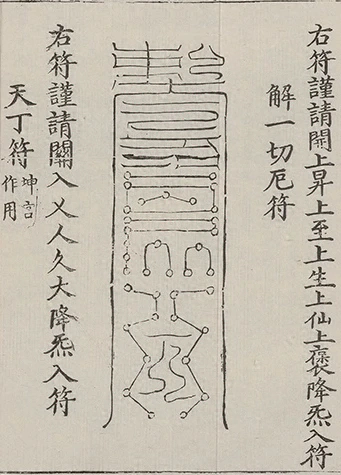 右符謹請開上昇上至上生上仙上褒降炁入符
解一切厄符
右符謹請關入乂人久大降炁入符
天丁符
坤宮
作用